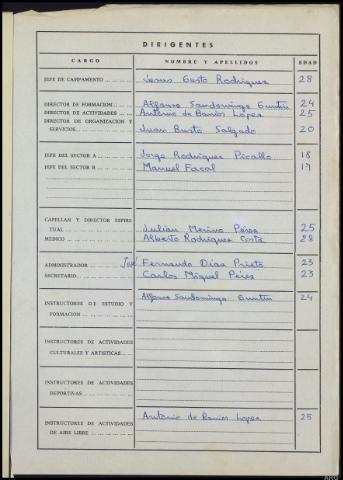 DIRIGENTES
CARGO NOMBRE Y APELLIDOS EDAD
JEFE DE CAMPAMENTO Jesus Gesto Rodriguez 28
DIRECTOR DE FORMACION Alfonso Sandomingo 24
DIRECTOR DE ACTIVIDADES Antonio de Barrios Lopez 25
DIRECTOR DE ORGANIZACION Y
SERVICIOS Juan Busto Salgado 20
JEFE DEL SECTOR A Jorge Rodriguez Picallo 18
JEFE DEL SECTOR B Manuel Forcal
CAPELLAN Y DIRECTOR ESPIRI-
TUAL Julian Merino Pérez 25
MEDICO Alberto Rodriguez Costa 28
ADMINISTRADOR José Fernando Diaz Prieto 23
SECRETARIO Carlos Miguel Pérez 23
INSTRUCTORES DE ESTUDIO Y Alfonso Sandomingo 24
FORMACION
INSTRUCTORES DE ACTIVIDADES
CULTURALES Y ARTISTICAS
INSTRUCTORES DE ACTIVIDADES
DEPORTIVAS
Antonio de Barrios Lopez 25
INSTRUCTORES DE ACTIVIDADES
DE AIRE LIBRE